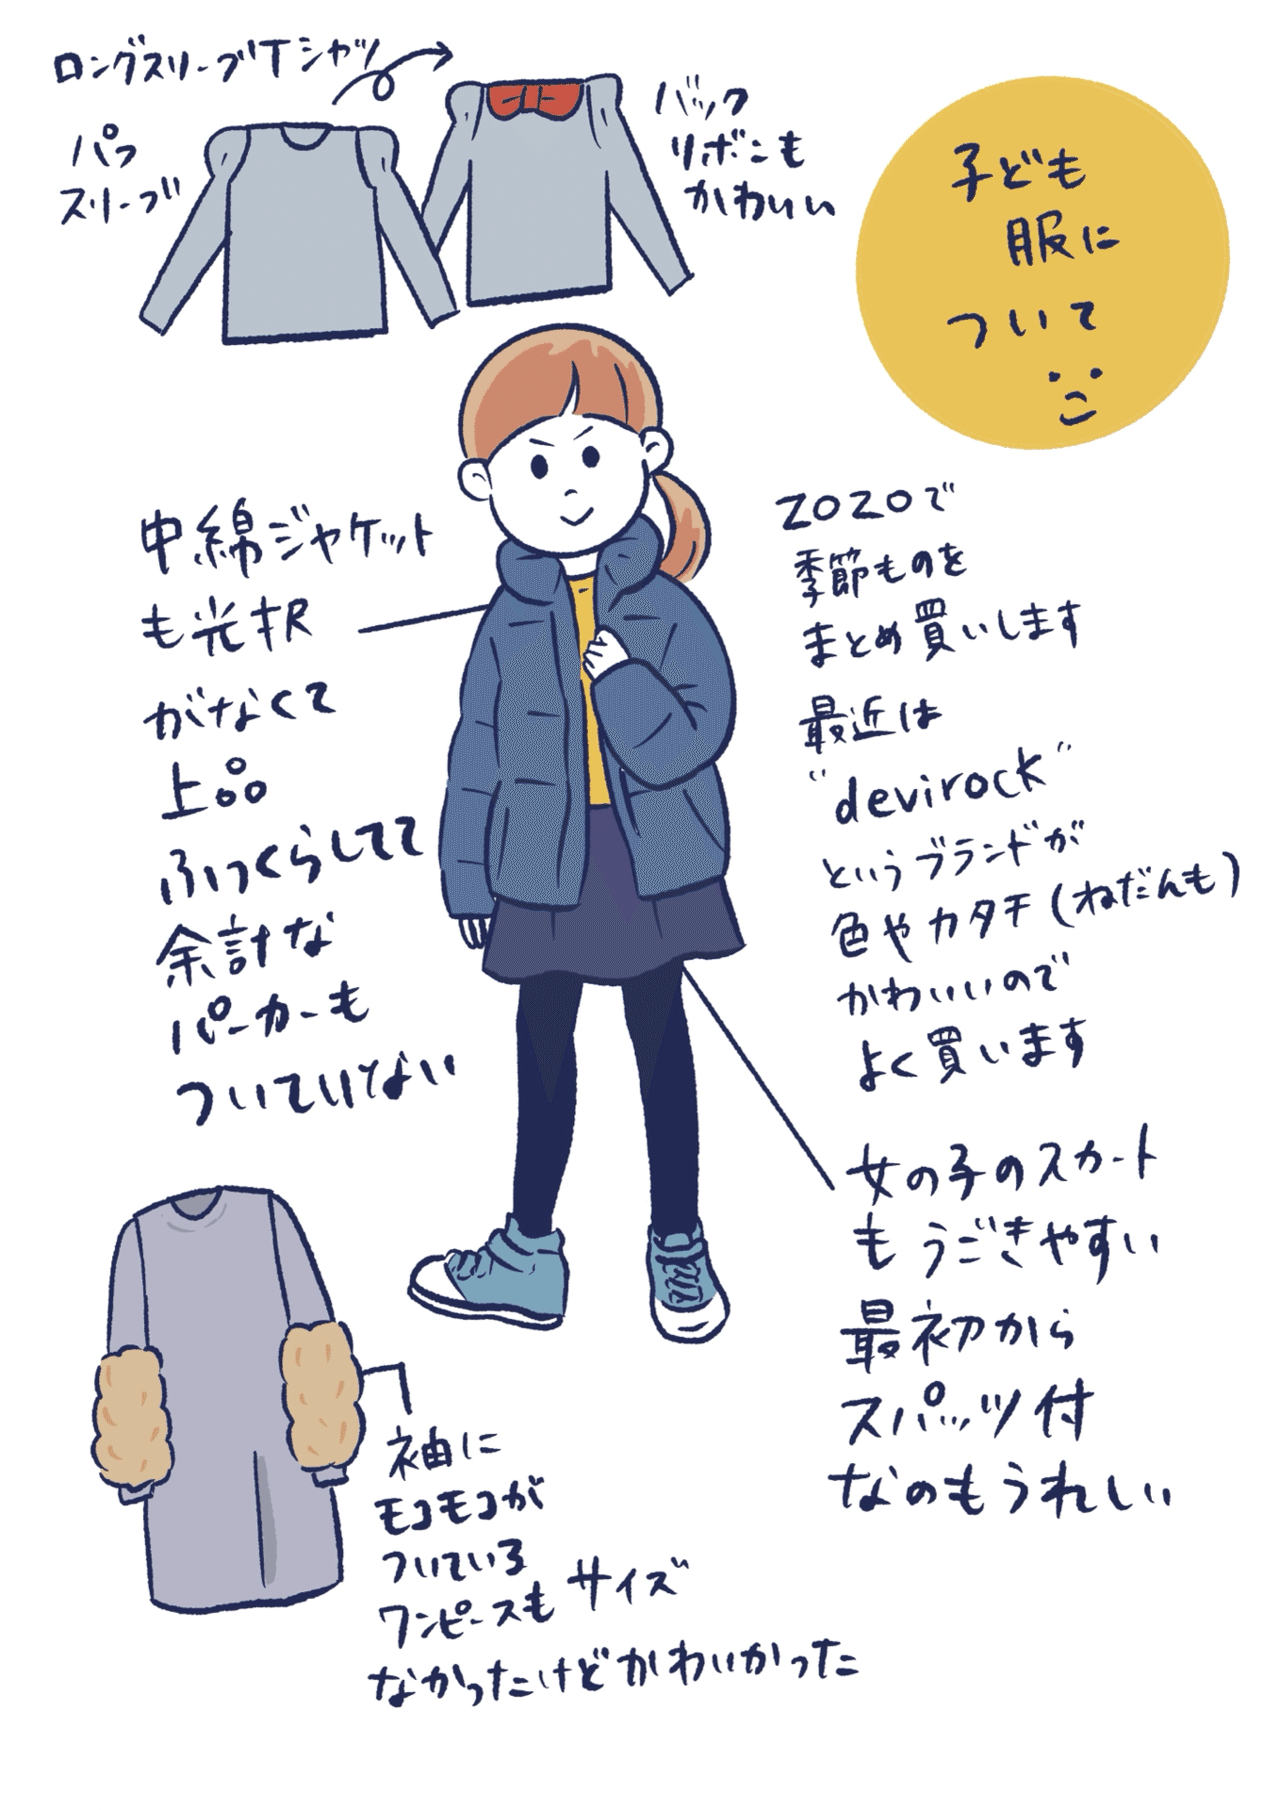 ロングスリーブTシャツ
パフ
スリーブ
バック
リボンも
かわいい
子ども
服に
ついて
中綿ジャケット
も光沢
がなくて
上品
ふっくらしてて
余計な
パーカーも
ついていない
ZOZOで
季節ものを
まとめ買いします
最近は
"devirock"
というブランドが
色やカタチ(ねだんも)
かわいいので
よく買います
女の子のスカート
もうごきやすい
最初から
スパッツ付
なのもうれしい
袖に
モコモコが
ついている
ワンピースもサイズ
なかったけどかわいかった